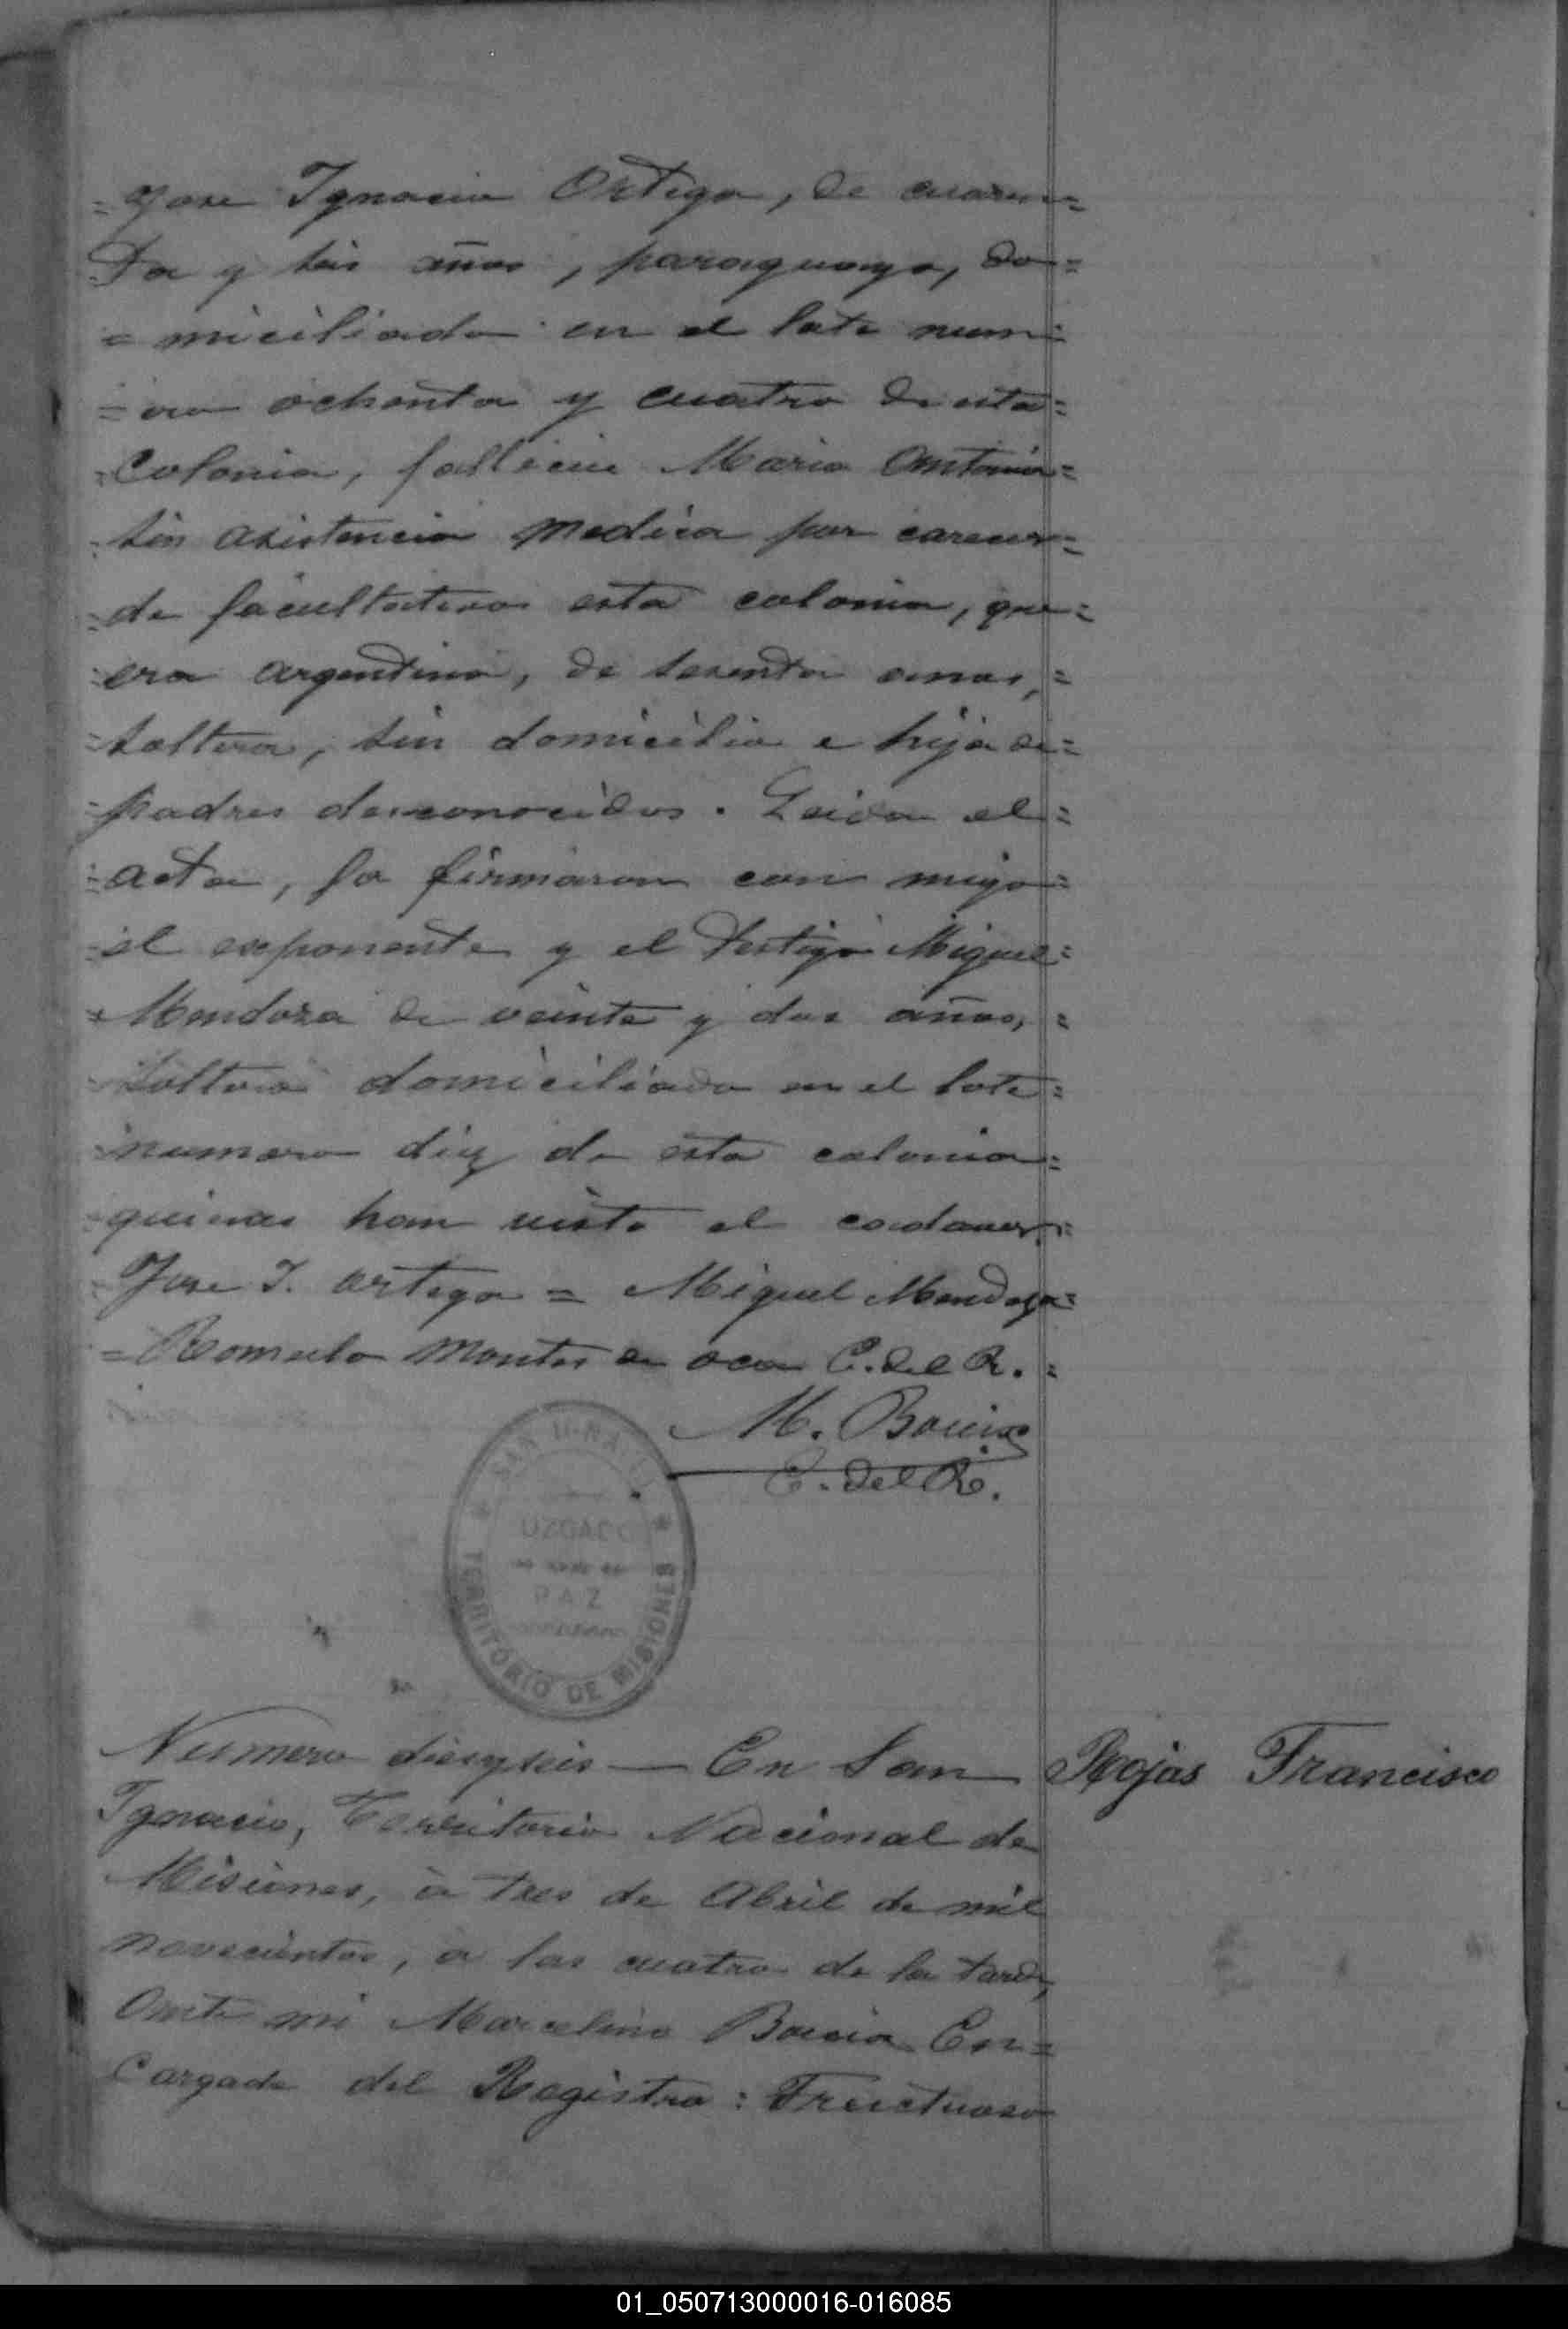 = Jose Ignacio Ortega, de cuaren=
ta y seis años, paraguayo, do=
= miciliado en el lote num=
= ero ochenta y cuatro de esta=
Colonia, fallecio Maria Antonia=
sin asistencia medica por carecer=
de facultativos esta colonia, que=
era argentina, de sesenta anos,=
soltera, sin domicilio e hija de=
padres desconocidos. Leida el=
acta, la firmaron con migo=
el exponente y el testigo Miguel=
Mendoza de veinte y dos años,=
soltero domiciliado en el lote=
numero diez de esta colonia=
quienes han visto el cadaver.=
Jose I. Ortega = Miguel Mendoza=
= Romulo Montes de oca E. del R. =
M. Bouix
E. del R.
SAN IGNACIO
JUZGADO
DE
PAZ
TERRITORIO DE MISIONES
Numero diesyseis — En San
Rojas Francisco
Ignacio, Territorio Nacional de
Misiones, à tres de Abril de mil
novecientos, a las cuatro de la tarde,
Ante mi Marcelino Bouix En=
cargado del Registro: Fructuoso
01_050713000016-016085